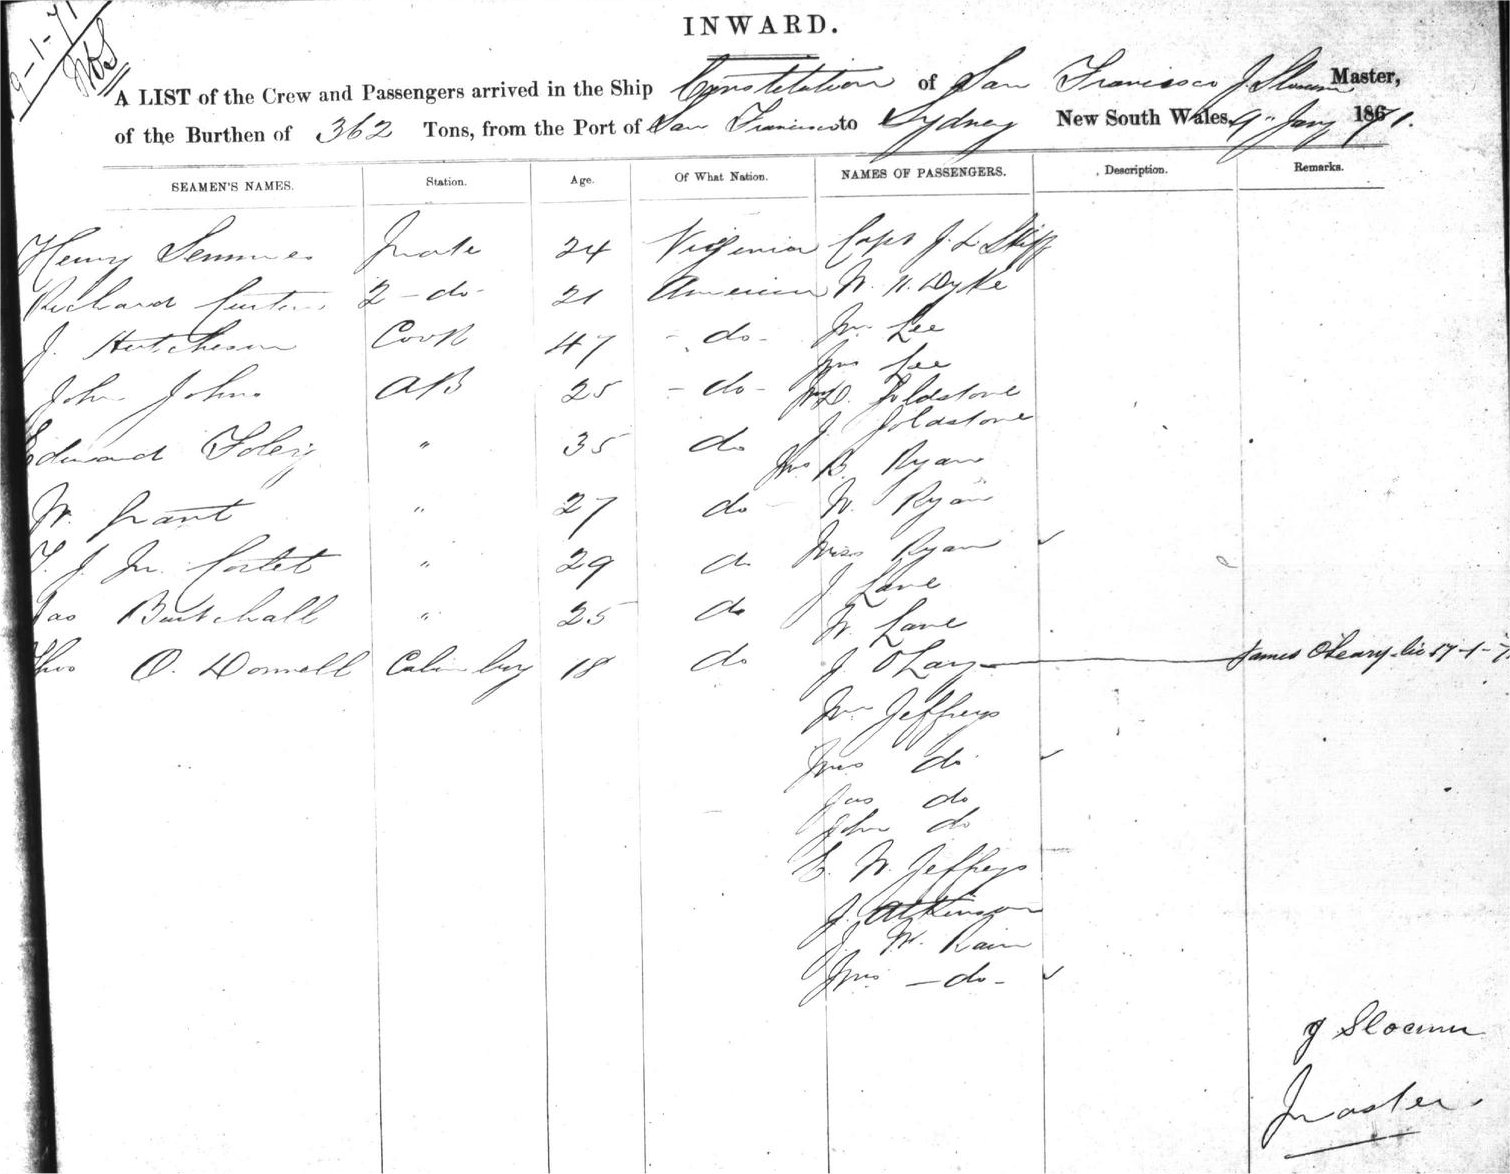 9-1-71
INWARD.
A LIST of the Crew and Passengers arrived in the Ship Constitution of San Francisco J Slocum Master,
of the Burthen of 362 Tons, from the Port of San Francisco to Sydney New South Wales, 9th Jany 1871.
SEAMEN'S NAMES. Station. Age. Of What Nation. NAMES OF PASSENGERS. Description. Remarks.
Henry Semmes Mate 24 Virginia Capt J. L. Skiff
Richard 2 - do - 21 American W. H. Dyke
J. Hutcheson Cook 47 - do - Mr Lee
Mrs Lee
John Johns AB 25 - do - Goldstone
J. Goldstone
Edward Foley " 35 do Mrs B Ryan
W. Grant " 27 do W. Ryan
T. J. M. " 29 do Miss Ryan
J Lane
Jas Burtchall " 25 do W. Lane
Thos O. Donnell Cabin boy 18 do J O'Lary James O'Leary 17-1-7
Mr Jeffreys
Mrs do
Jas do
John do
E. W. Jeffreys
J. Atkinson
J. W. Rain
Mrs - do -
J Slocum
Master